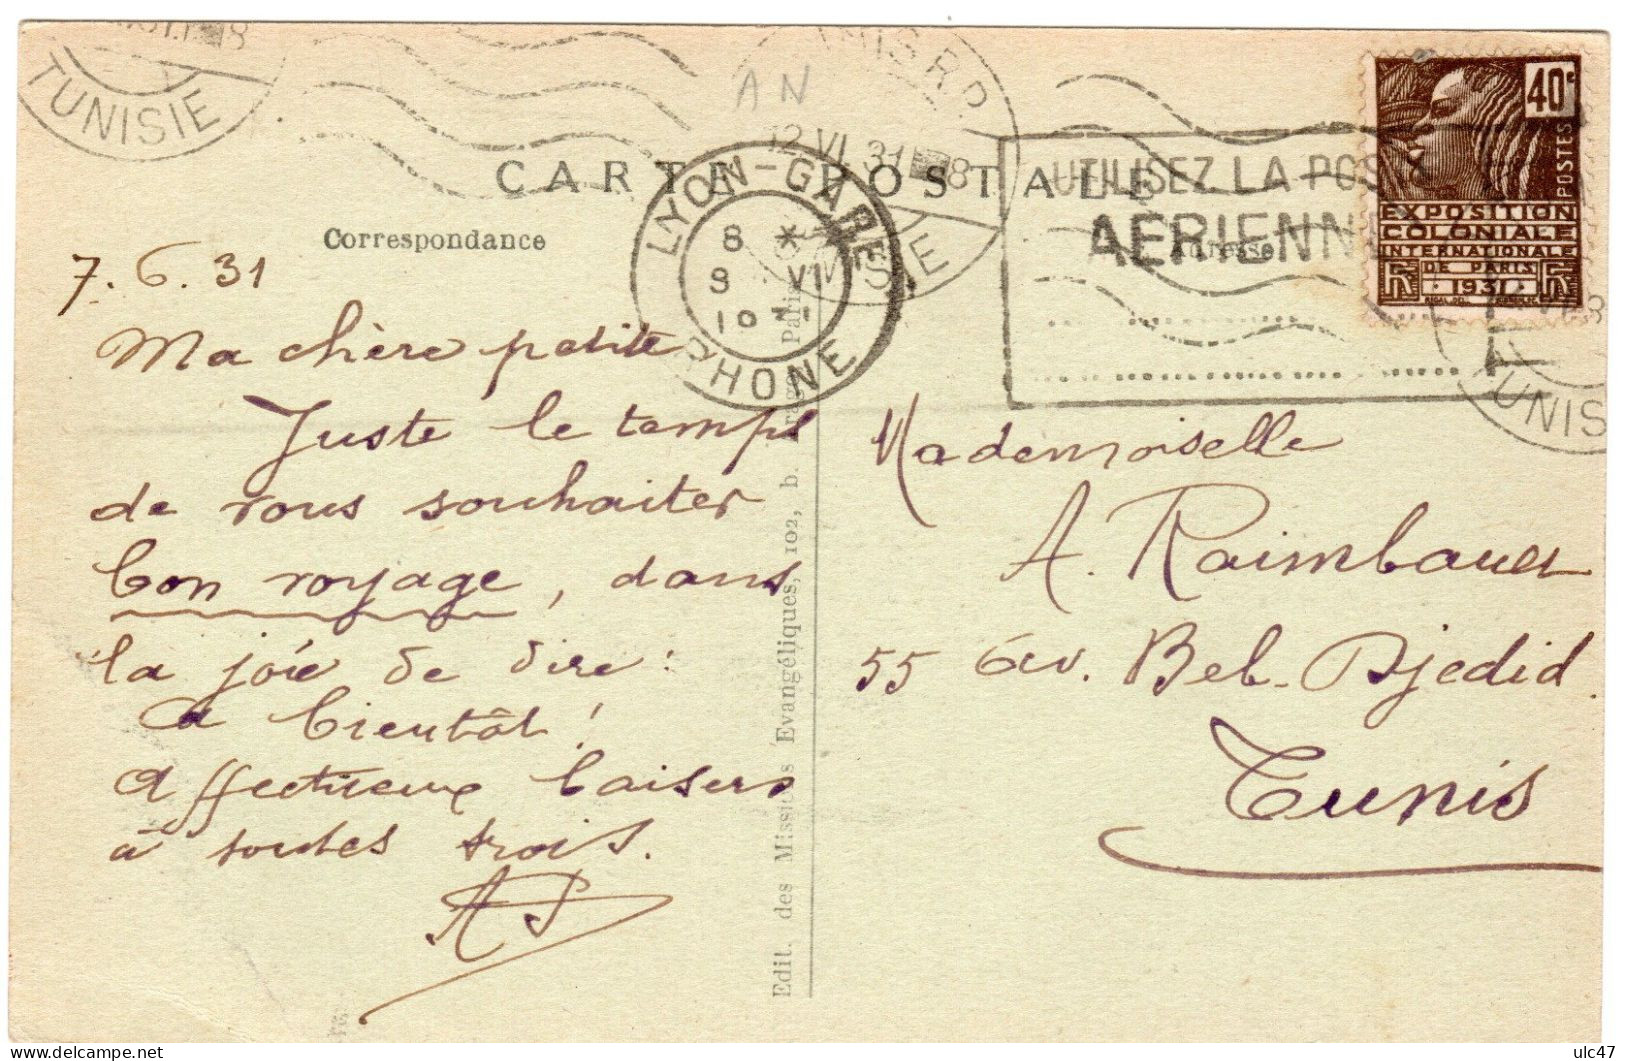 TUNISIE
AN
TUNIS R.P.
12 VI 31 18
CARTE POSTALE
UTILISEZ LA POSTE
AERIENNE
40c
POSTES
EXPOSITION
COLONIALE
INTERNATIONALE
DE PARIS
1931
LYON-GARE
8 *
8 VI
1931
RHONE
Correspondance
Adresse
7.6.31
Ma chère petite
Juste le temps
de vous souhaiter
bon voyage, dans
la joie de dire :
A bientôt !
Affectueux baisers
à toutes trois.
Mademoiselle
A. Raimbault
55 Av. Bab-Djedid.
Tunis
TUNISIE
Edit. des Missions Evangéliques, 102, b. Arago Paris
ulc47